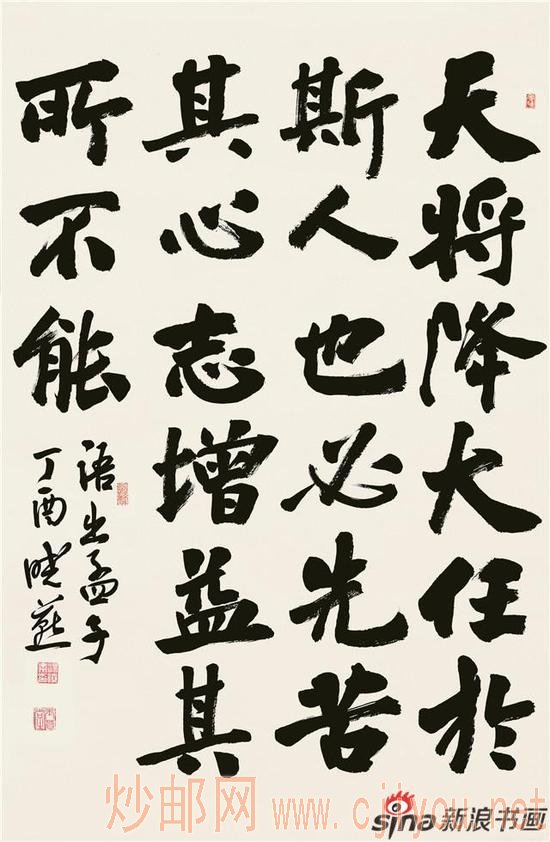 天将降大任於
斯人也必先苦
其心志增益其
所不能
语出孟子
丁酉晓燕
炒邮网 www.cjiyou.net
sina 新浪书画